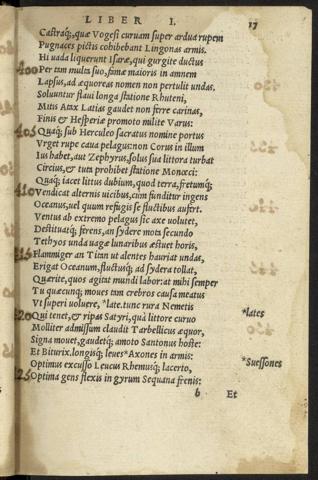 LIBER I. 17
Castraq́;, quæ Vogesi curuam super ardua rupem
Pugnaces pictis cohibebant Lingonas armis.
Hi uada liquerunt Isaræ, qui gurgite ductus
400 Per tam multa suo, famæ maioris in amnem
Lapsus, ad æquoreas nomen non pertulit undas.
Soluuntur flaui longa statione Rhuteni,
Mitis Atax Latias gaudet non ferre carinas,
Finis & Hesperiæ promoto milite Varus:
405 Quaq́; sub Herculeo sacratus nomine portus
Vrget rupe caua pelagus: non Corus in illum
Ius habet, aut Zephyrus, solus sua littora turbat
Circius, & tuta prohibet statione Monœci:
Quaq́; iacet littus dubium, quod terra, fretumq́;
410 Vendicat alternis uicibus, cum funditur ingens
Oceanus, uel quum refugis se fluctibus aufert.
Ventus ab extremo pelagus sic axe uolutet,
Destituatq́; ferens, an sydere mota secundo
Tethyos unda uagæ lunaribus æstuet horis,
415 Flammiger an Titan ut alentes hauriat undas,
Erigat Oceanum, fluctusq́; ad sydera tollat,
Quærite, quos agitat mundi labor: at mihi semper
Tu quæcunq́; moues tam crebros causa meatus
Vt superi uoluere, *late. tunc rura Nemetis
420 Qui tenet, & ripas Satyri, quà littore curuo *lates
Molliter admissum claudit Tarbellicus æquor,
Signa mouet, gaudetq́; amoto Santonus hoste:
Et Biturix, longisq́; leues *Axones in armis: *Suessones
Optimus excusso Leucus Rhemusq́; lacerto,
425 Optima gens flexis in gyrum Sequana frenis:
b Et